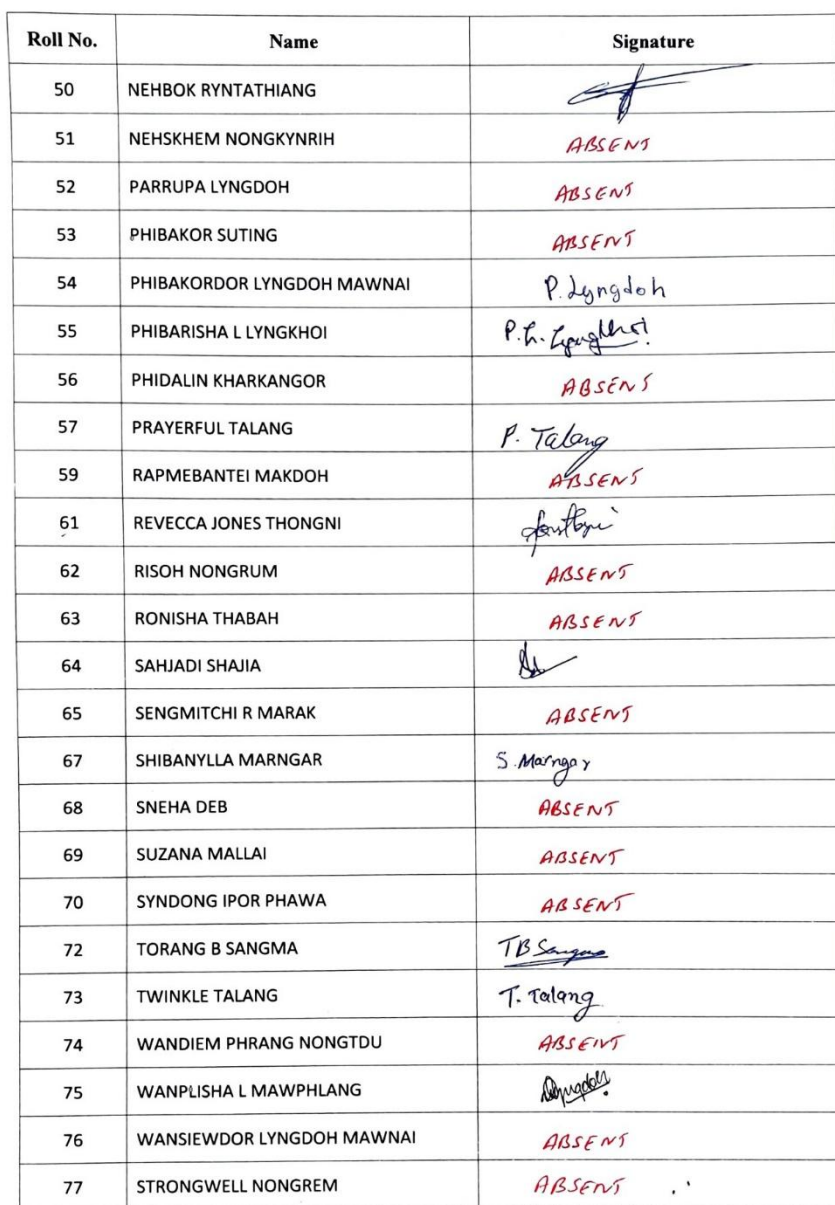 Roll No. Name Signature
50 NEHBOK RYNTATHIANG
51 NEHSKHEM NONGKYNRIH ABSENT
52 PARRUPA LYNGDOH ABSENT
53 PHIBAKOR SUTING ABSENT
54 PHIBAKORDOR LYNGDOH MAWNAI P. Lyngdoh
55 PHIBARISHA L LYNGKHOI P. L. Lyngkhoi
56 PHIDALIN KHARKANGOR ABSENT
57 PRAYERFUL TALANG P. Talang
59 RAPMEBANTEI MAKDOH ABSENT
61 REVECCA JONES THONGNI
62 RISOH NONGRUM ABSENT
63 RONISHA THABAH ABSENT
64 SAHJADI SHAJIA
65 SENGMITCHI R MARAK ABSENT
67 SHIBANYLLA MARNGAR S. Marngar
68 SNEHA DEB ABSENT
69 SUZANA MALLAI ABSENT
70 SYNDONG IPOR PHAWA ABSENT
72 TORANG B SANGMA TB Sangma
73 TWINKLE TALANG T. Talang
74 WANDIEM PHRANG NONGTDU ABSENT
75 WANPLISHA L MAWPHLANG
76 WANSIEWDOR LYNGDOH MAWNAI ABSENT
77 STRONGWELL NONGREM ABSENT